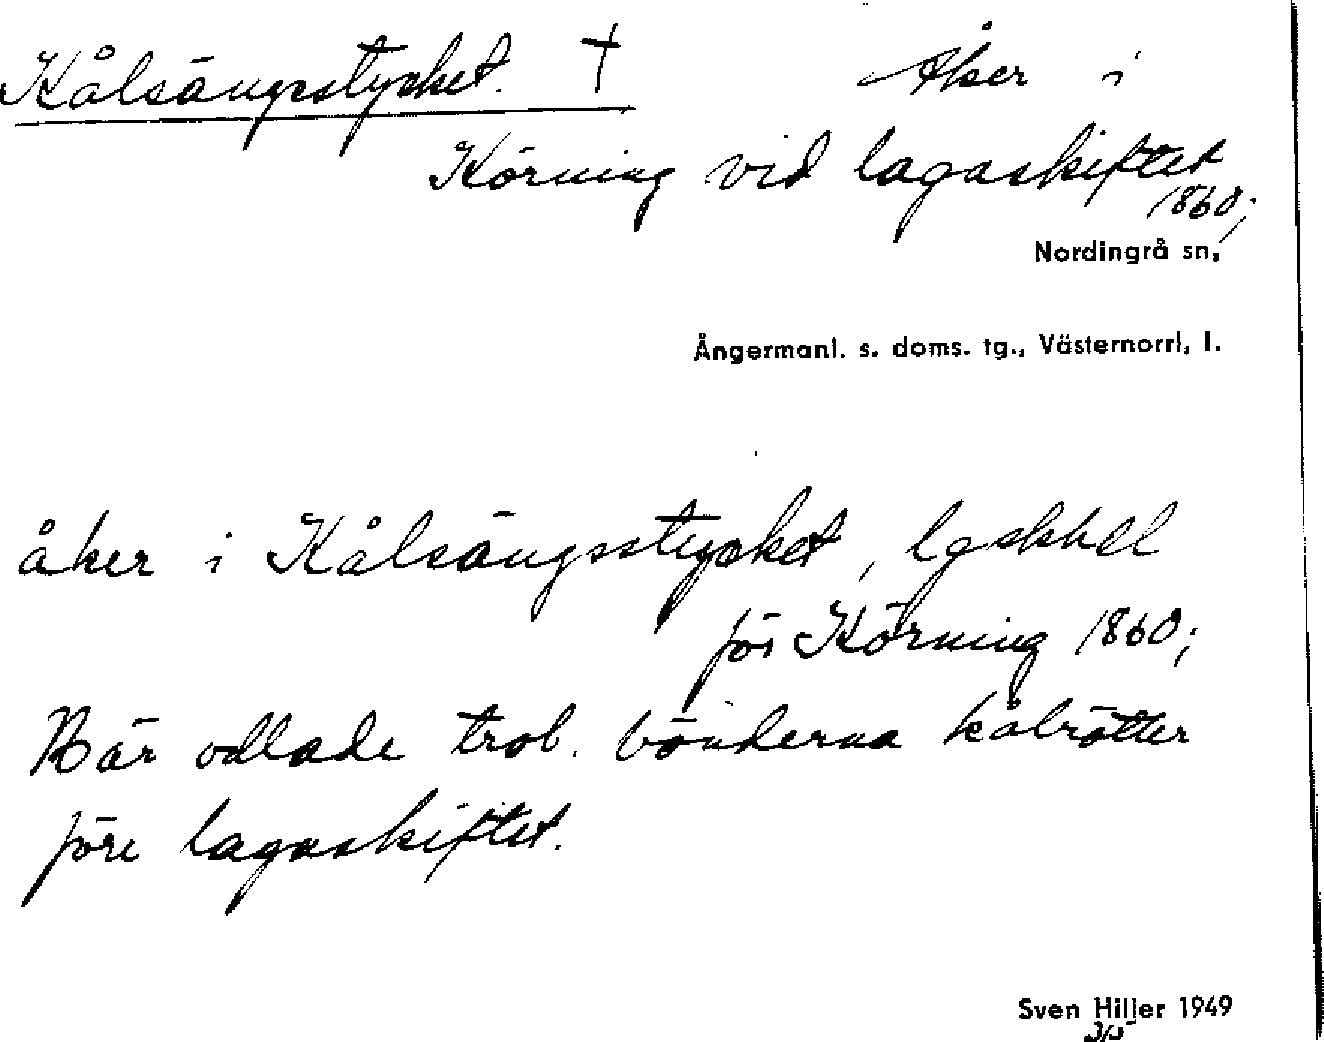 Kålsängsstycket. † Åker i
Körning vid lagaskiftet
1860;
Nordingrå sn,
Ångermanl. s. doms. tg., Västernorrl, l.
åker i Kålsängsstycket, lgskhdl
för Körning 1860;
Där odlade trol. bönderna kålrötter
före lagaskiftet.
Sven Hiller 1949